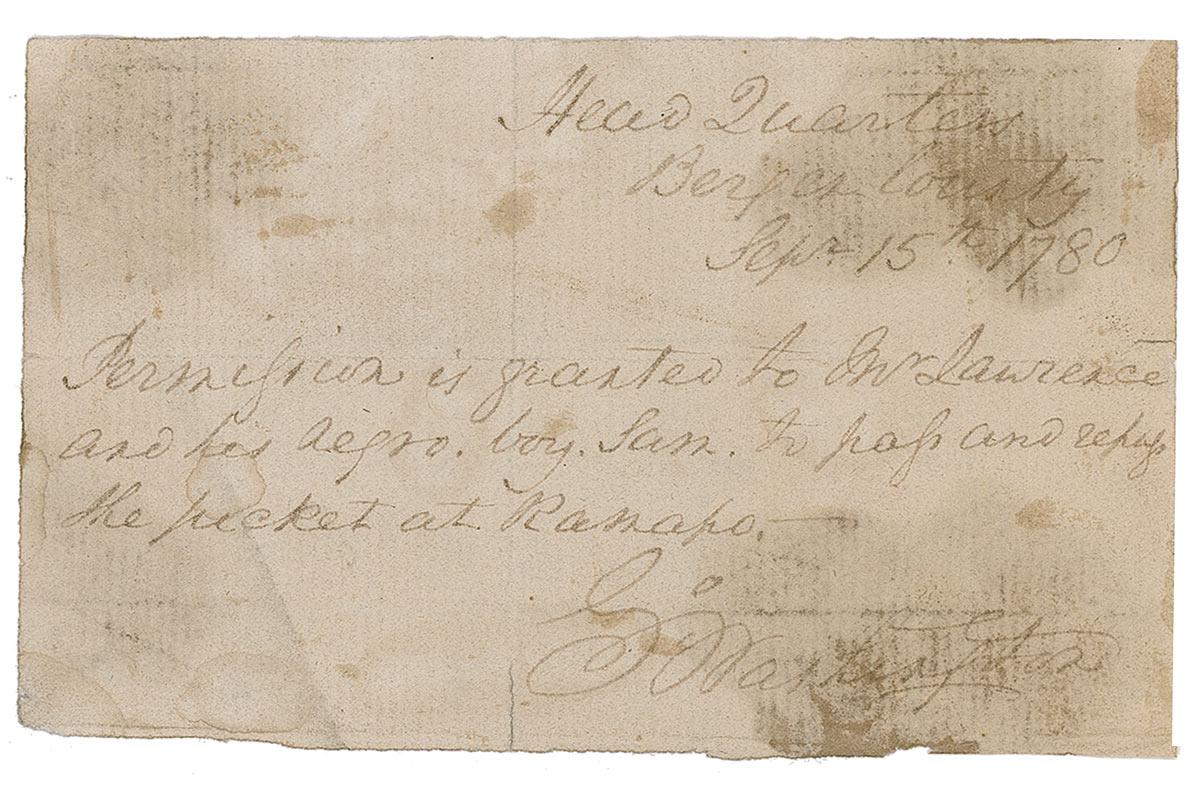 Head Quarters
Bergen County
Sepr 15th 1780
Permission is granted to Mr Lawrence
and his negro. boy. Sam. to pass and repass
the picket at Ramapo.
Go Washington